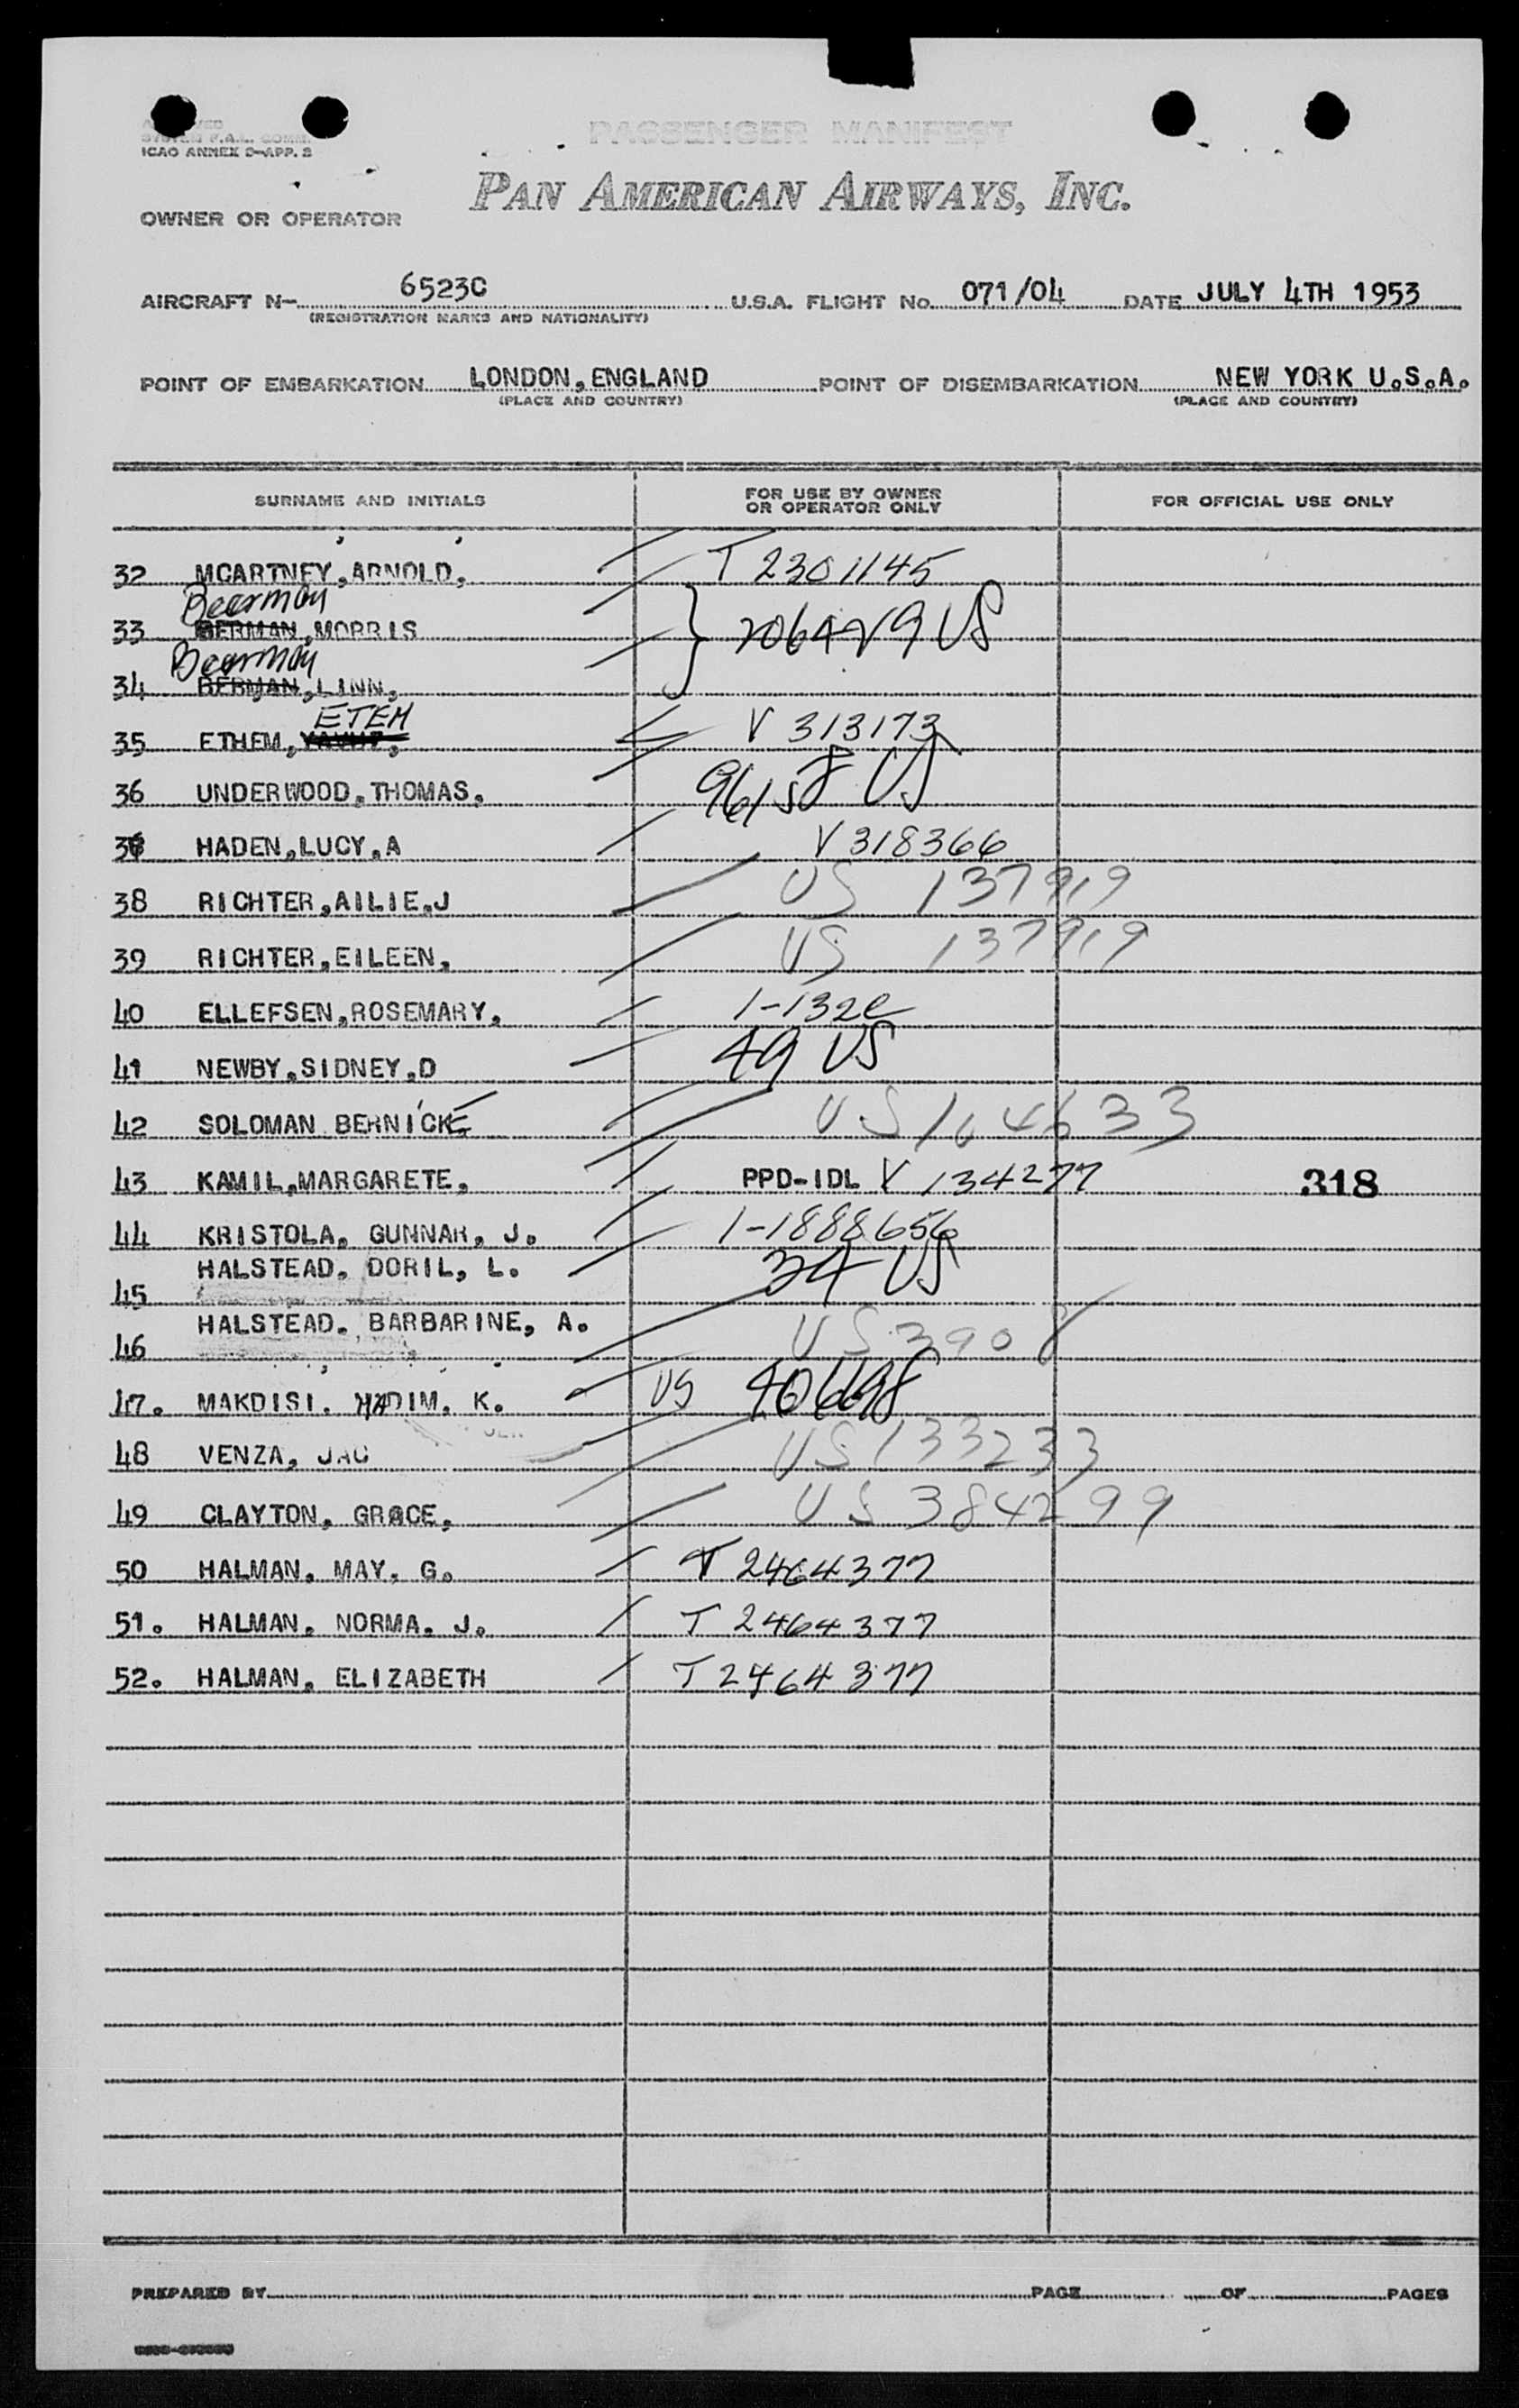 PASSENGER MANIFEST
ICAO ANNEX 9-APP. 2
PAN AMERICAN AIRWAYS, INC.
OWNER OR OPERATOR
AIRCRAFT N- 6523C U.S.A. FLIGHT No. 071/04 DATE JULY 4TH 1953
(REGISTRATION MARKS AND NATIONALITY)
POINT OF EMBARKATION LONDON, ENGLAND POINT OF DISEMBARKATION NEW YORK U.S.A.
(PLACE AND COUNTRY) (PLACE AND COUNTRY)
SURNAME AND INITIALS FOR USE BY OWNER OR OPERATOR ONLY FOR OFFICIAL USE ONLY
32 MCARTNEY, ARNOLD, T 2301145
Beerman
33 BERMAN, MORRIS US
Beerman
34 BERMAN, LINN,
ETEM
35 ETHEM, V 313173
36 UNDERWOOD, THOMAS, 96158 US
HADEN, LUCY, A V 318366
38 RICHTER, AILIE, J US 137919
39 RICHTER, EILEEN, US 137919
40 ELLEFSEN, ROSEMARY, 1-132
41 NEWBY, SIDNEY, D 49 US
42 SOLOMAN BERNICE US 164633
43 KAMIL, MARGARETE, PPD-IDL V 134277 318
44 KRISTOLA, GUNNAR, J. 1-1888656
45 HALSTEAD, DORIL, L. 34 US
46 HALSTEAD, BARBARINE, A. US 3908
47. MAKDISI, NADIM, K. US
48 VENZA, JAC US 133233
49 CLAYTON, GRACE, US 384299
50 HALMAN, MAY, G. T 2464377
51. HALMAN, NORMA, J. T 2464377
52. HALMAN, ELIZABETH T 2464377
PREPARED BY PAGE OF PAGES